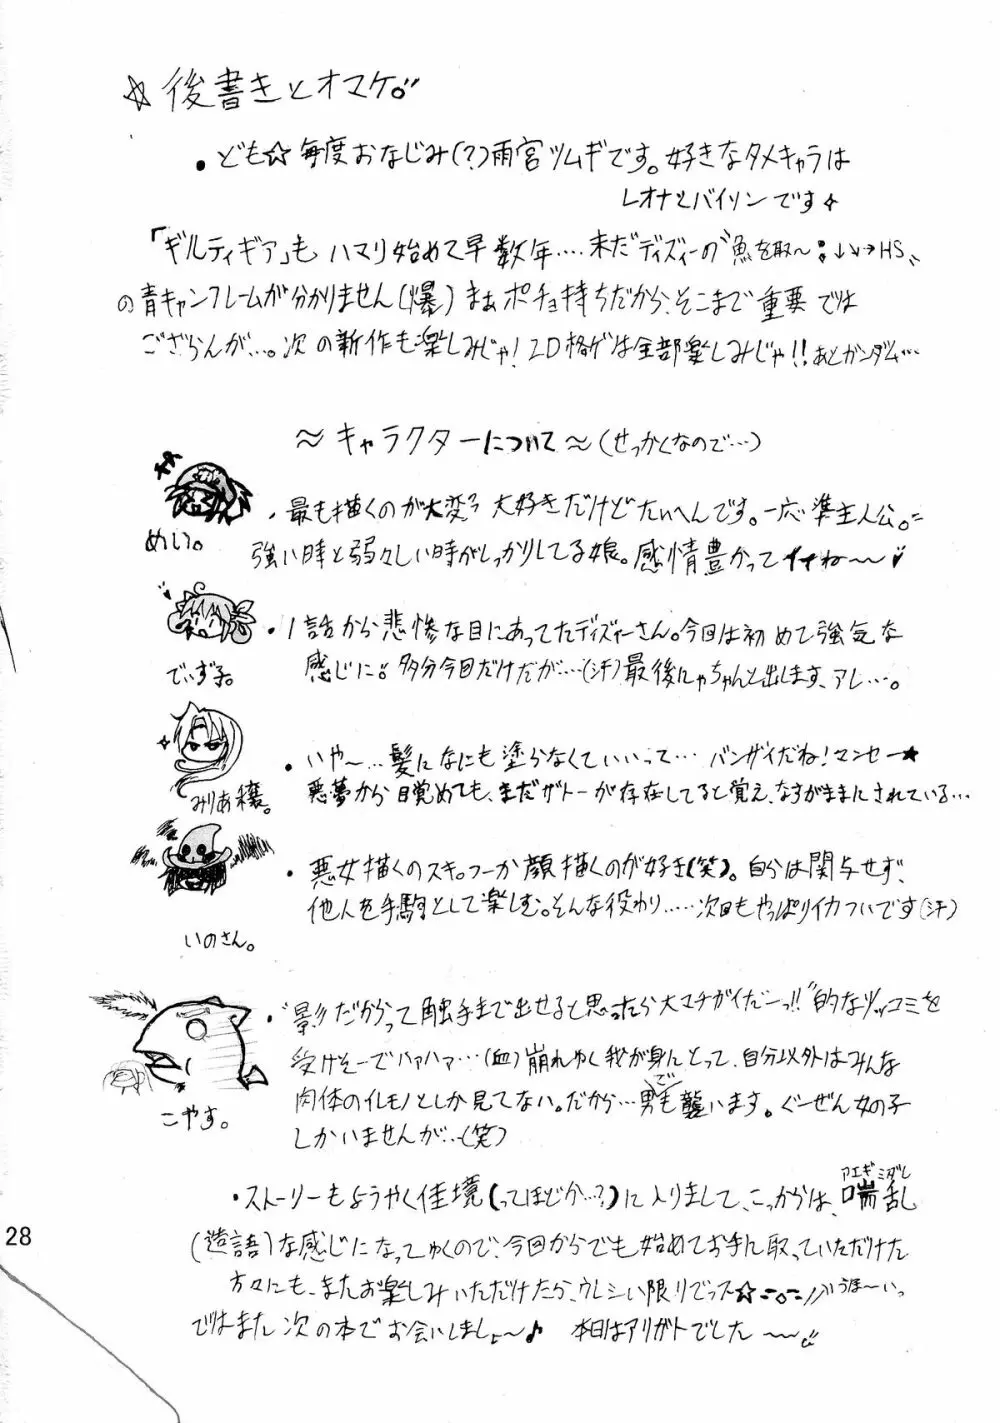 ☆後書きとオマケ。
・ども☆毎度おなじみ(?)雨宮ツムギです。好きなダメキャラは
レオナとバイソンです
「ギルティギア」もハマり始めて早数年‥‥未だディズィーの“魚を取〜:↓↘→HS”
の青キャンフレームが分かりません(爆)まぁポチョ持ちだから、そこまで重要では
ござらんが…。次の新作も楽しみじゃ!2D格ゲは全部楽しみじゃ!!あとガンダム…
〜キャラクターについて〜(せっかくなので…)
めい。
・最も描くのが大変。大好きだけどたいへんです。一応準主人公。
強い時と弱々しい時がしっかりしてる娘。感情豊かってイイね〜
でぃず子。
・1話から悲惨な目にあってたディズィーさん。今回は初めて強気な
感じに。多分今回だけだが‥‥(汗)最後にゃちゃんと出します、アレ…。
みりあ穣。
・いや〜…髪になにも塗らなくていいって…バンザイだね!マンセー★
悪夢から目覚めても、まだザトーが存在してると覚え、なすがままにされている…
いのさん。
・悪女描くのスキ。つーか顔描くのが好き(笑)。自分は関与せず、
他人を手駒として楽しむ。そんな役わり……次回もやっぱりイカついです(汗)
こやす。
・“影だからって触手まで出せると思ったら大マチガイだーっ!!”的なツッコミを
受けそーでハァハァ…(血)崩れゆく我が身にとって、自分以外はみんな
肉体のイレモノとしか見てない。だから…男でも襲います。ぐーぜん女の子
しかいませんが‥(笑)
・ストーリーもようやく佳境(ってほどか…?)に入りまして、こっからは、喘乱
アエギミダレ
(造語)な感じになってゆくので、今回からでも始めてお手に取っていただけた
方々にも、またお楽しみいただけたら、ウレシい限りでっス☆ うほーいっ
ではまた次の本でお会いしましょ〜♪ 本日はアリガトでした〜
28